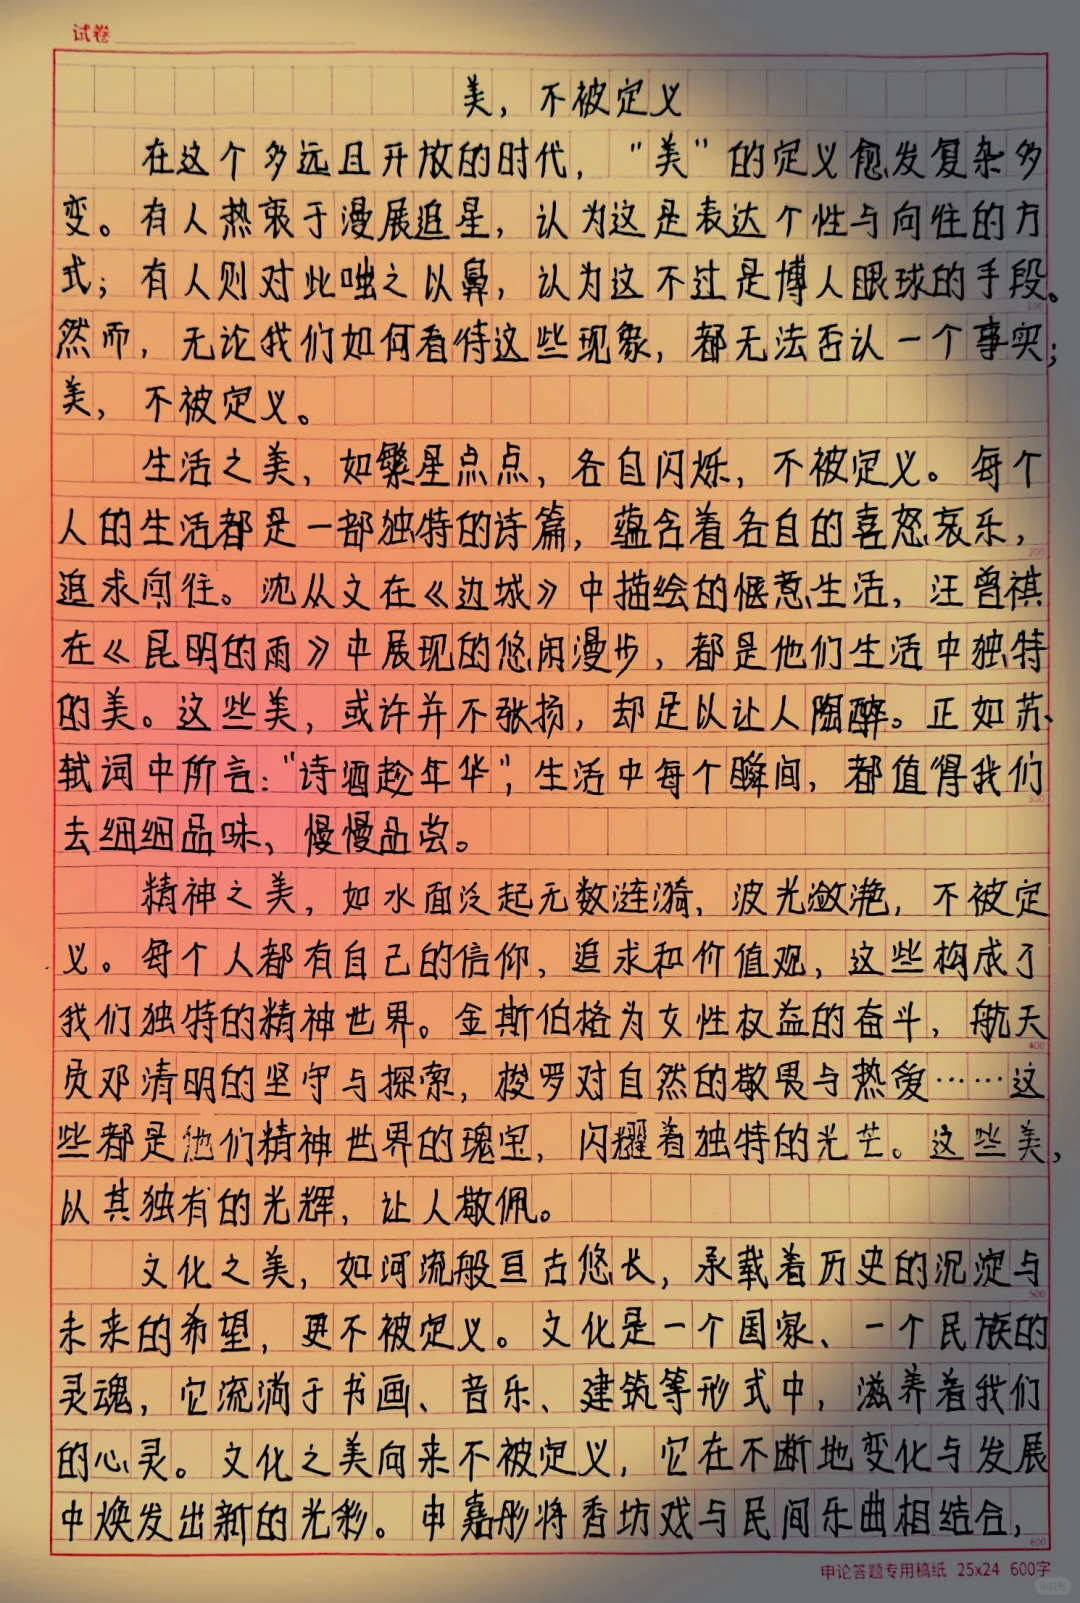 试卷
美，不被定义
在这个多远且开放的时代，“美”的定义愈发复杂多
变。有人热衷于漫展追星，认为这是表达个性与向往的方
式；有人则对此咄之以鼻，认为这不过是博人眼球的手段。
然而，无论我们如何看待这些现象，都无法否认一个事实；
美，不被定义。
生活之美，如繁星点点，各自闪烁，不被定义。每个
人的生活都是一部独特的诗篇，蕴含着各自的喜怒哀乐，
追求向往。沈从文在《边城》中描绘的惬意生活，汪曾祺
在《昆明的雨》中展现的悠闲漫步，都是他们生活中独特
的美。这些美，或许并不张扬，却足以让人陶醉。正如苏
轼词中所言：“诗酒趁年华”，生活中每个瞬间，都值得我们
去细细品味，慢慢品尝。
精神之美，如水面泛起无数涟漪，波光潋滟，不被定
义。每个人都有自己的信仰，追求和价值观，这些构成了
我们独特的精神世界。金斯伯格为女性权益的奋斗，航天
员邓清明的坚守与探索，梭罗对自然的敬畏与热爱……这
些都是他们精神世界的瑰宝，闪耀着独特的光芒。这些美，
以其独有的光辉，让人敬佩。
文化之美，如河流般亘古悠长，承载着历史的沉淀与
未来的希望，更不被定义。文化是一个国家、一个民族的
灵魂，它流淌于书画、音乐、建筑等形式中，滋养着我们
的心灵。文化之美向来不被定义，它在不断地变化与发展
中焕发出新的光彩。申嘉彤将香坊戏与民间乐曲相结合，
100
200
300
400
500
600
申论答题专用稿纸 25x24 600字
小红书